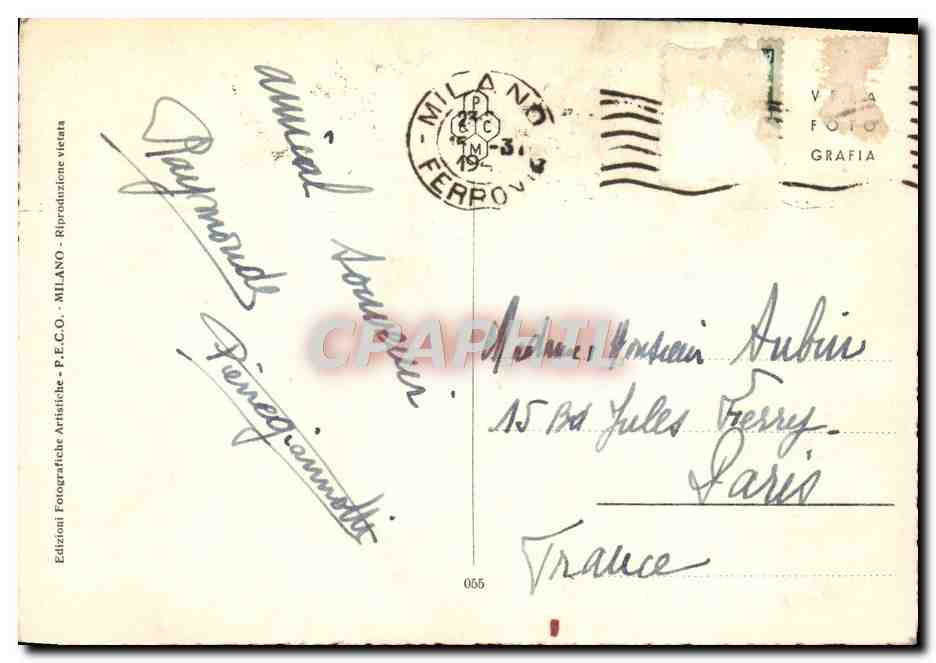 Edizioni Fotografiche Artistiche - P.E.C.O. - MILANO - Riproduzione vietata
amical
souvenir
Raymonde
Pierregiannotti
MILANO
P
E C
M
FERROVIA
VERA
FOTO
GRAFIA
CPAPHIL
Madame Monsieur Aubin
15 Bd Jules Ferry.
Paris
France
055